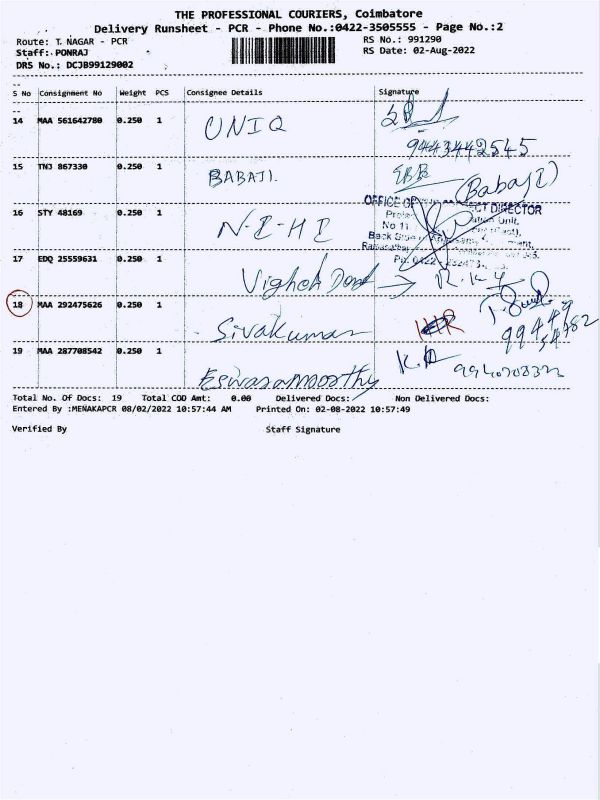 THE PROFESSIONAL COURIERS, Coimbatore
Delivery Runsheet - PCR - Phone No.:0422-3505555 - Page No.:2
Route: T. NAGAR - PCR
RS No.: 991290
Staff: PONRAJ
RS Date: 02-Aug-2022
DRS No.: DCJB99129002
S No Consignment No Weight PCS Consignee Details Signature
14 MAA 561642780 0.250 1 UNIQ
9443442545
15 TNJ 867330 0.250 1 BABAJI
(Babaji)
OFFICE OF ECT DIRECTOR
16 STY 48169 0.250 1 N-I-H-I
No 11
Unit,
17 EDQ 25559631 0.250 1 Vignesh R.K.Y
18 MAA 292475626 0.250 1 Sivakumar
99449
54782
19 MAA 287708542 0.250 1 Eswaramoorthy K.R
Total No. Of Docs: 19 Total COD Amt: 0.00 Delivered Docs: Non Delivered Docs:
Entered By :MENAKAPCR 08/02/2022 10:57:44 AM Printed On: 02-08-2022 10:57:49
Verified By Staff Signature